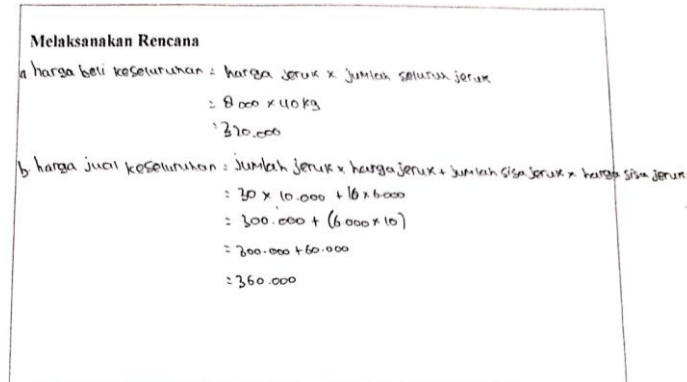 Melaksanakan Rencana
a harga beli keseluruhan = harga jeruk x jumlah seluruh jeruk
= 8000 x 40 kg
= 320.000
b. harga jual keseluruhan = jumlah jeruk x harga jeruk + jumlah sisa jeruk x harga sisa jeruk
= 30 x 10.000 + 10 x 6000
= 300.000 + (6000 x 10)
= 300.000 + 60.000
= 360.000